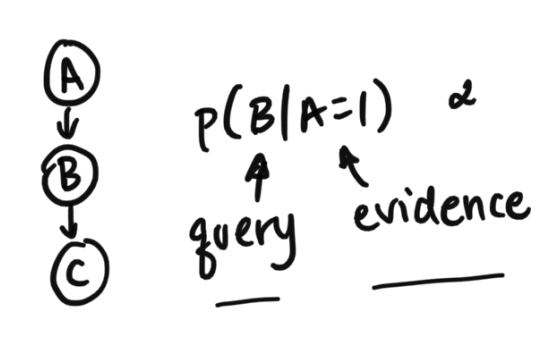 A
P(B|A=1) α
B
query evidence
C